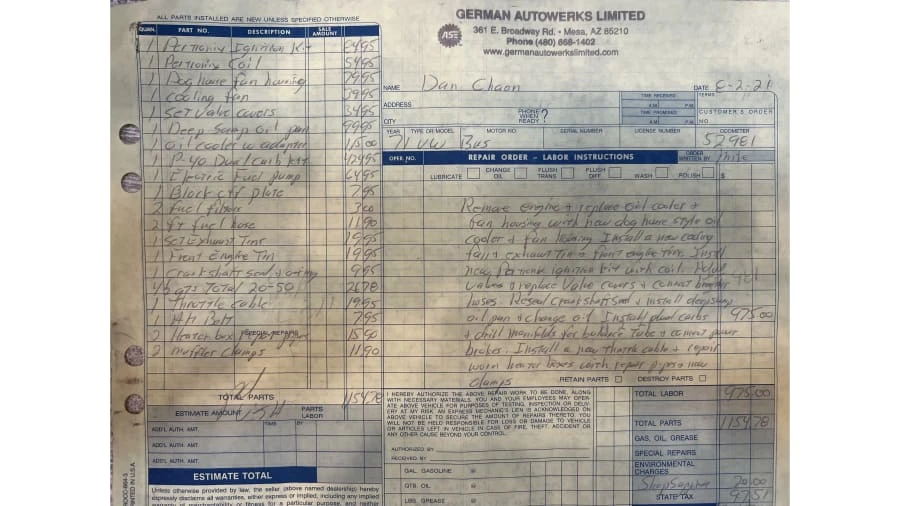 ALL PARTS INSTALLED ARE NEW UNLESS SPECIFIED OTHERWISE
QUAN. PART NO. DESCRIPTION SALE AMOUNT
1 Pertronix Ignition Kit 8495
1 Pertronix Coil 5495
1 Dog house fan housing 7995
1 cooling fan 3995
1 Set Valve covers 3495
1 Deep Sump oil pan 9995
1 Oil cooler w adapter 11500
1 P-40 Dual carb kit 42495
1 Electric Fuel pump 6495
1 Block off plate 795
2 fuel filters 300
2 ft fuel hose 1190
1 Set Exhaust Tins 1995
1 Front Engine Tin 1995
1 Crankshaft seal + oring 995
4 1/2 qts Total 20-50 2678
1 Throttle cable 1995
1 Alt Belt 795
SPECIAL REPAIRS
2 Heater box repair pipes 1590
2 Muffler Clamps 1190
TOTAL PARTS 115478
ESTIMATE AMOUNT PARTS LABOR
ADD'L AUTH. AMT. TIME BY
ADD'L AUTH. AMT.
ADD'L AUTH. AMT.
ESTIMATE TOTAL
Unless otherwise provided by law, the seller (above named dealership) hereby
expressly disclaims all warranties, either express or implied, including any implied
warranty of merchantability or fitness for a particular purpose, and neither
PRINTED IN U.S.A.
GERMAN AUTOWERKS LIMITED
ASE
361 E. Broadway Rd. • Mesa, AZ 85210
Phone (480) 668-1402
www.germanautowerkslimited.com
NAME Dan Chaon DATE 8-2-21
ADDRESS TIME RECEIVED A.M. P.M. TERMS
CITY PHONE WHEN READY? TIME PROMISED A.M. P.M. CUSTOMER'S ORDER NO.
YEAR TYPE OR MODEL MOTOR NO. SERIAL NUMBER LICENSE NUMBER ODOMETER
71 VW Bus 52981
OPER. NO. REPAIR ORDER – LABOR INSTRUCTIONS ORDER WRITTEN BY Mike
LUBRICATE CHANGE OIL FLUSH TRANS. FLUSH DIFF. WASH POLISH $
Remove engine + replace oil cooler +
fan housing with new dog house style oil
cooler + fan housing Install a new cooling
fan + exhaust tins + front engine tin. Install
new Pertronix ignition kit with coil. Adjust
valves + replace Valve covers + connect breather
hoses. Reseal Crankshaft seal + install deepsump
oil pan + change oil Install dual carbs 975.00
+ drill manifolds for balance tube + connect power
brakes. Install a new throttle cable + repair
worn heater boxes with repair pipes + new
clamps
RETAIN PARTS DESTROY PARTS
I HEREBY AUTHORIZE THE ABOVE REPAIR WORK TO BE DONE, ALONG
WITH NECESSARY MATERIALS. YOU AND YOUR EMPLOYEES MAY OPER-
ATE ABOVE VEHICLE FOR PURPOSES OF TESTING, INSPECTION OR DELIV-
ERY AT MY RISK. AN EXPRESS MECHANIC'S LIEN IS ACKNOWLEDGED ON
ABOVE VEHICLE TO SECURE THE AMOUNT OF REPAIRS THERETO. YOU
WILL NOT BE HELD RESPONSIBLE FOR LOSS OR DAMAGE TO VEHICLE
OR ARTICLES LEFT IN VEHICLE IN CASE OF FIRE, THEFT, ACCIDENT OR
ANY OTHER CAUSE BEYOND YOUR CONTROL.
AUTHORIZED BY
RECEIVED BY
GAL. GASOLINE @
QTS. OIL @
LBS. GREASE @
TOTAL LABOR 975.00
TOTAL PARTS 1154.78
GAS, OIL, GREASE
SPECIAL REPAIRS
ENVIRONMENTAL CHARGES
Shop Supplies 20.00
STATE TAX 97.51